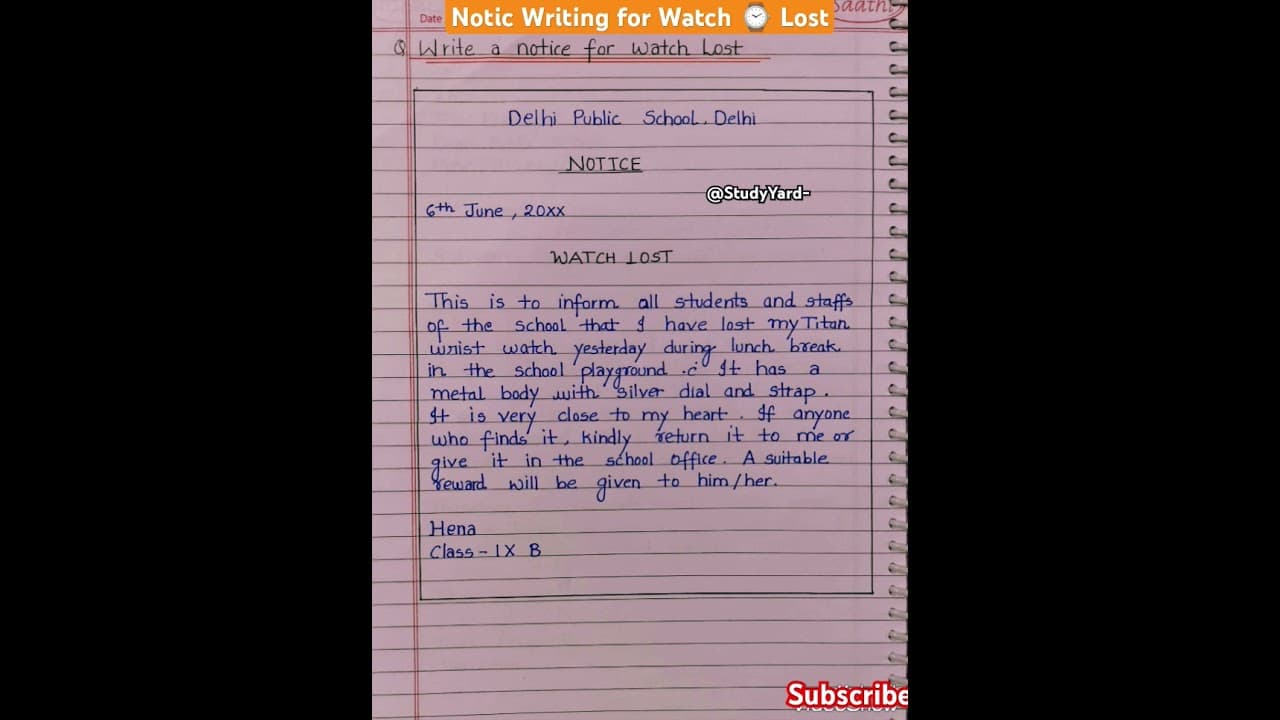 Saathi
Date
Notic Writing for Watch ⌚ Lost
Q Write a notice for Watch Lost
Delhi Public School, Delhi
NOTICE
@StudyYard-
6th June, 20xx
WATCH LOST
This is to inform all students and staffs
of the school that I have lost my Titan
wrist watch yesterday during lunch break
in the school playground. It has a
metal body with silver dial and strap.
It is very close to my heart. If anyone
who finds it, kindly return it to me or
give it in the school office. A suitable
reward will be given to him/her.
Hena
Class - IX B
Subscribe